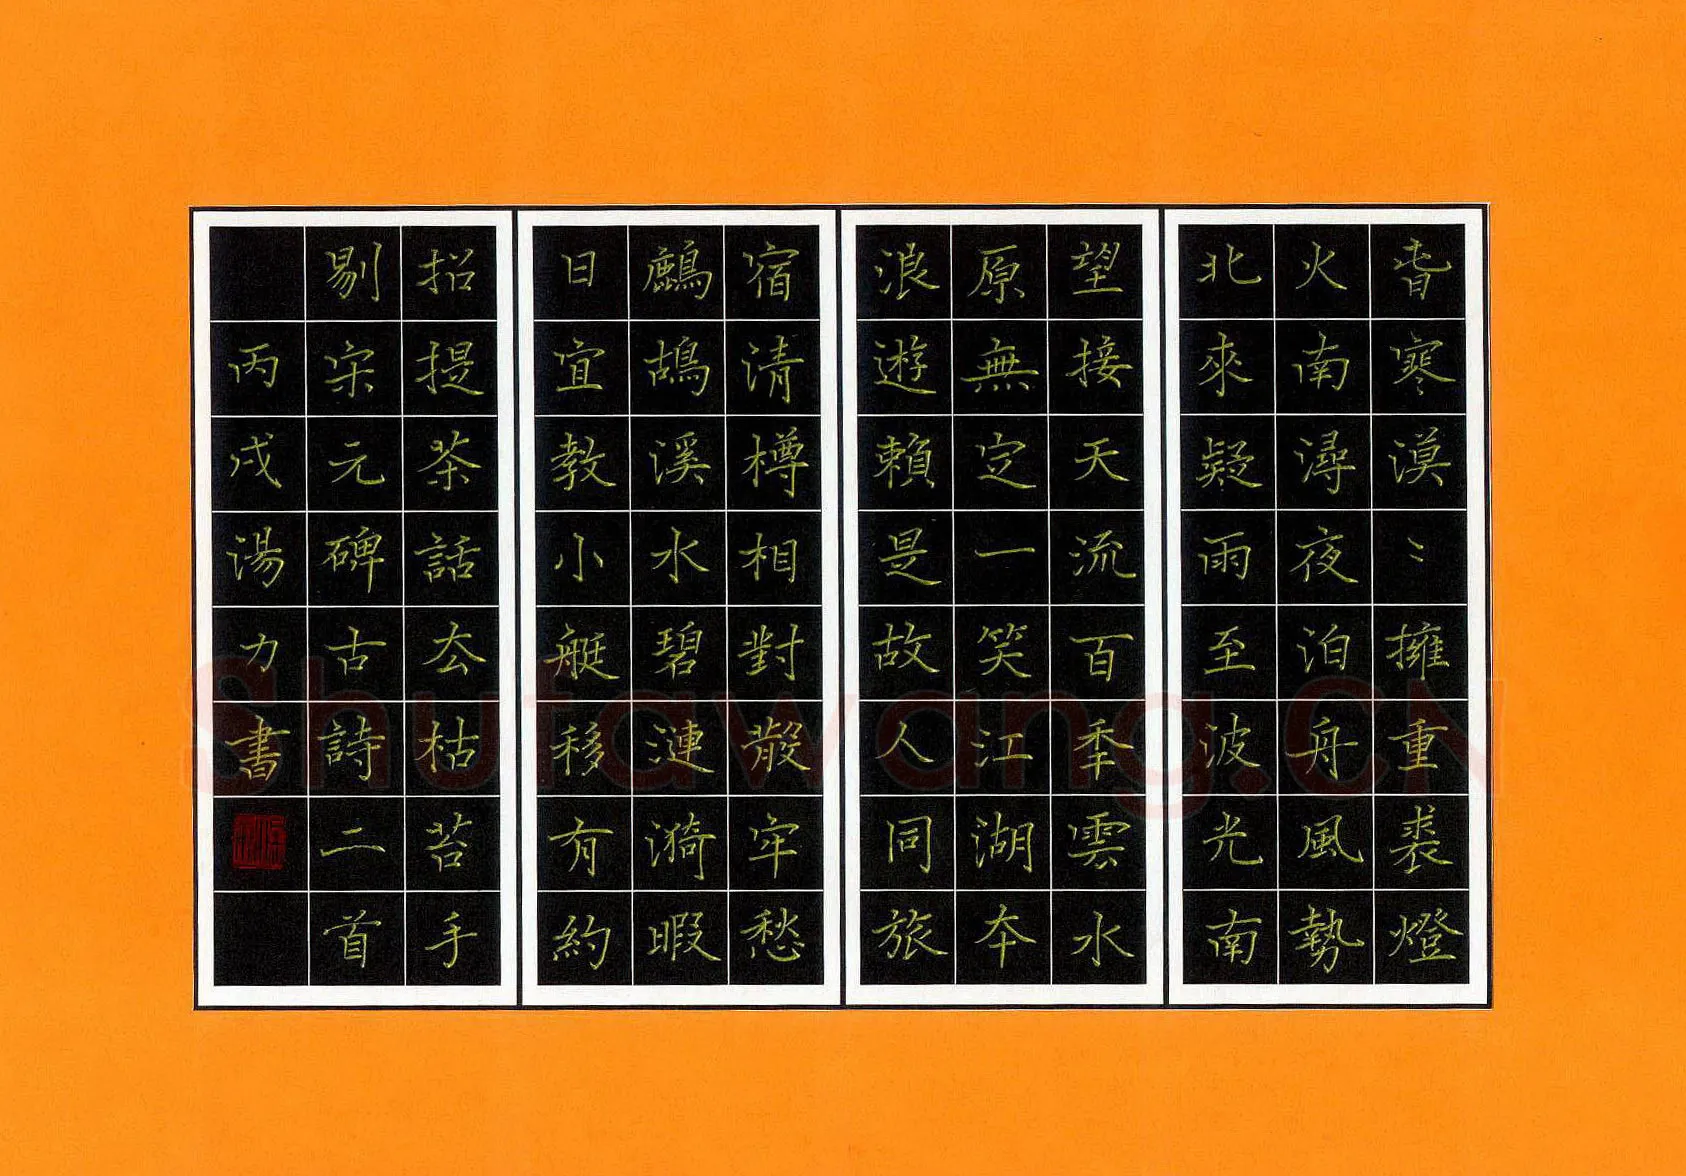 旾寒漠〻擁重裘燈
火南潯夜泊舟風勢
北來疑雨至波光南
望接天流百秊雲水
原無定一笑江湖夲
浪遊賴是故人同旅
宿清樽相對散牢愁
鷓鴣溪水碧漣漪暇
日宜教小艇移有約
招提茶話厺枯苔手
剔宋元碑古詩二首
丙戌湯力書
Shufawang.CN